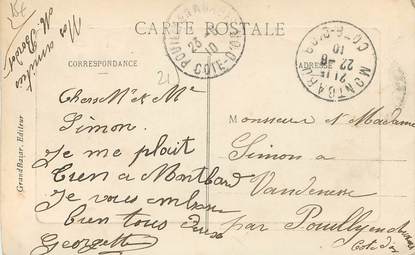 CARTE POSTALE
CORRESPONDANCE
ADRESSE
21
Chers Mr et Me
Simon.
Je me plait
bien a Montbard
Je vous embrasse
bien tous deux
Georgette
Mes amitiés
Monsieur et Madame
Simon a
Vandenesse
par Pouilly en Auxois
Cote d'or
Grand Bazar, Editeur
POUILLY
23
10
COTE-D'OR
MONTBARD
21
22 -6
10
COTE-D'OR